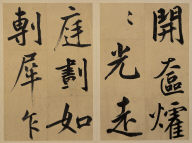 開奩燿
〻光走
庭劃如
剸犀乍